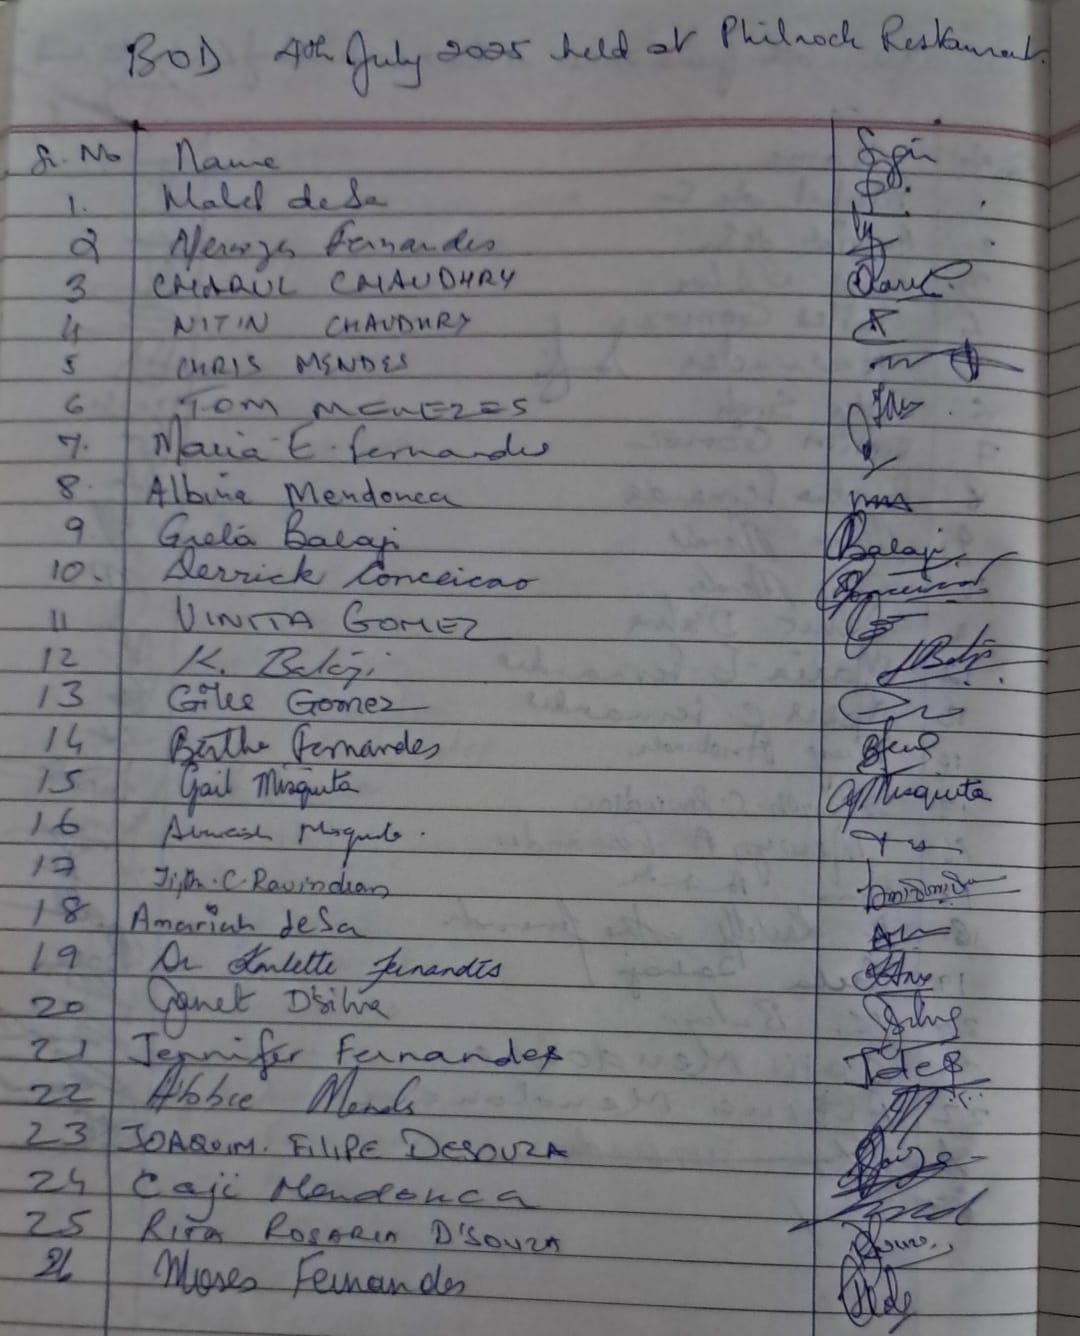 BOD 4th July 2025 held at Philrock Restaurant.
Sr. No Name Sign
1. Mabel deSa
2 Fernandes
3 CHARUL CHAUDHRY
4 NITIN CHAUDHRY
5 CHRIS MENDES
6 TOM MENEZES
7. Maria E. Fernandes
8. Albina Mendonca
9 Greta Balaji Balaji
10. Derrick Conceicao
11 VINITA GOMEZ
12 K. Balaji
13 Giles Gomez
14 Berthe Fernandes
15 Gail Misquita G Misquita
16
17 C. Ravindran
18 Amariah deSa
19 Dr Fernandes
20 Janet D'silva
21 Jennifer Fernandes
22
23 JOAQUIM. FILIPE DESOUZA
24 Caji Mendonca
25 RITA ROSARIA D'SOUZA
26 Moses Fernandes